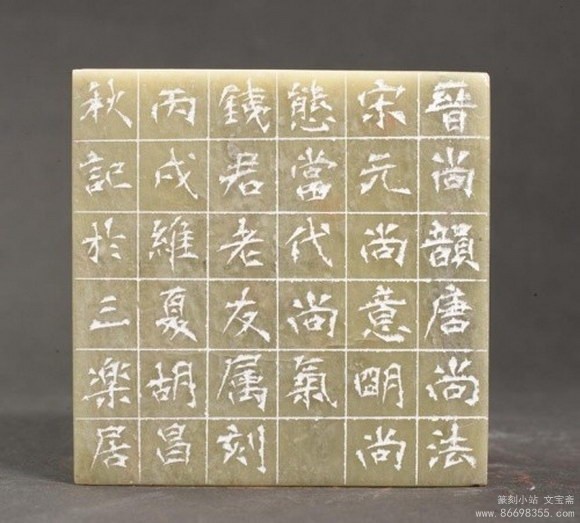 晉尚韻唐尚法
宋元尚意明尚
態當代尚氣
君老友属刻
丙戌維夏胡昌
秋記於三楽居
篆刻小站 文宝斋
www.86698355.com